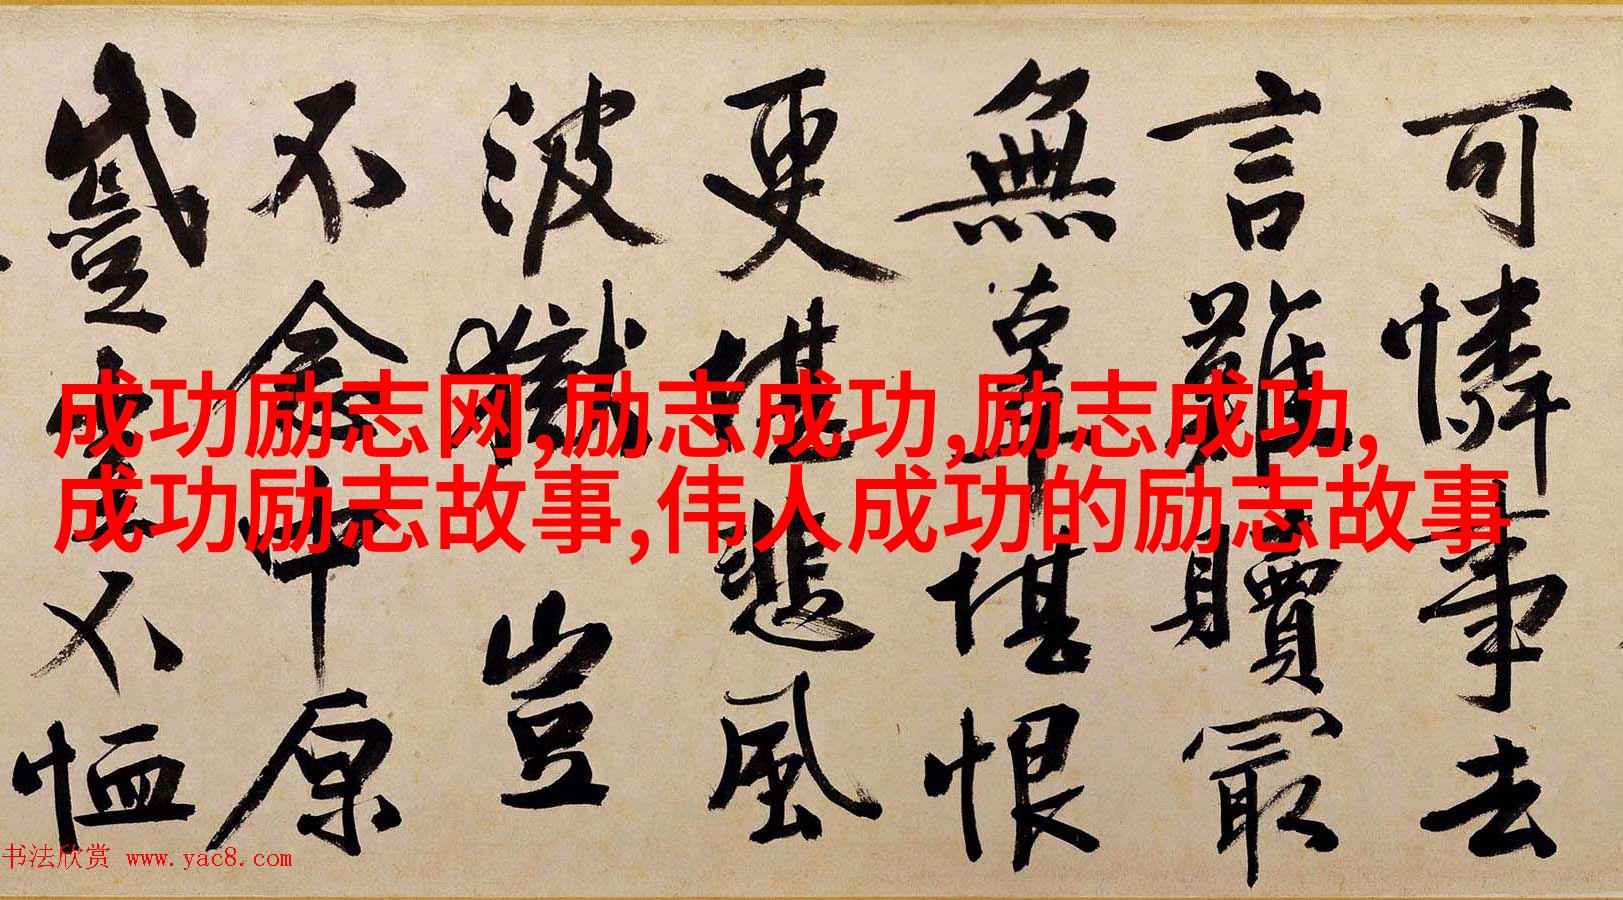 可憐事去
言難贖冣
無辜堪恨
更堪悲風
波獄豈
不念中原
不恤
成功励志网,励志成功,励志成功,
成功励志故事,伟人成功的励志故事
书法欣赏 www.yac8.com